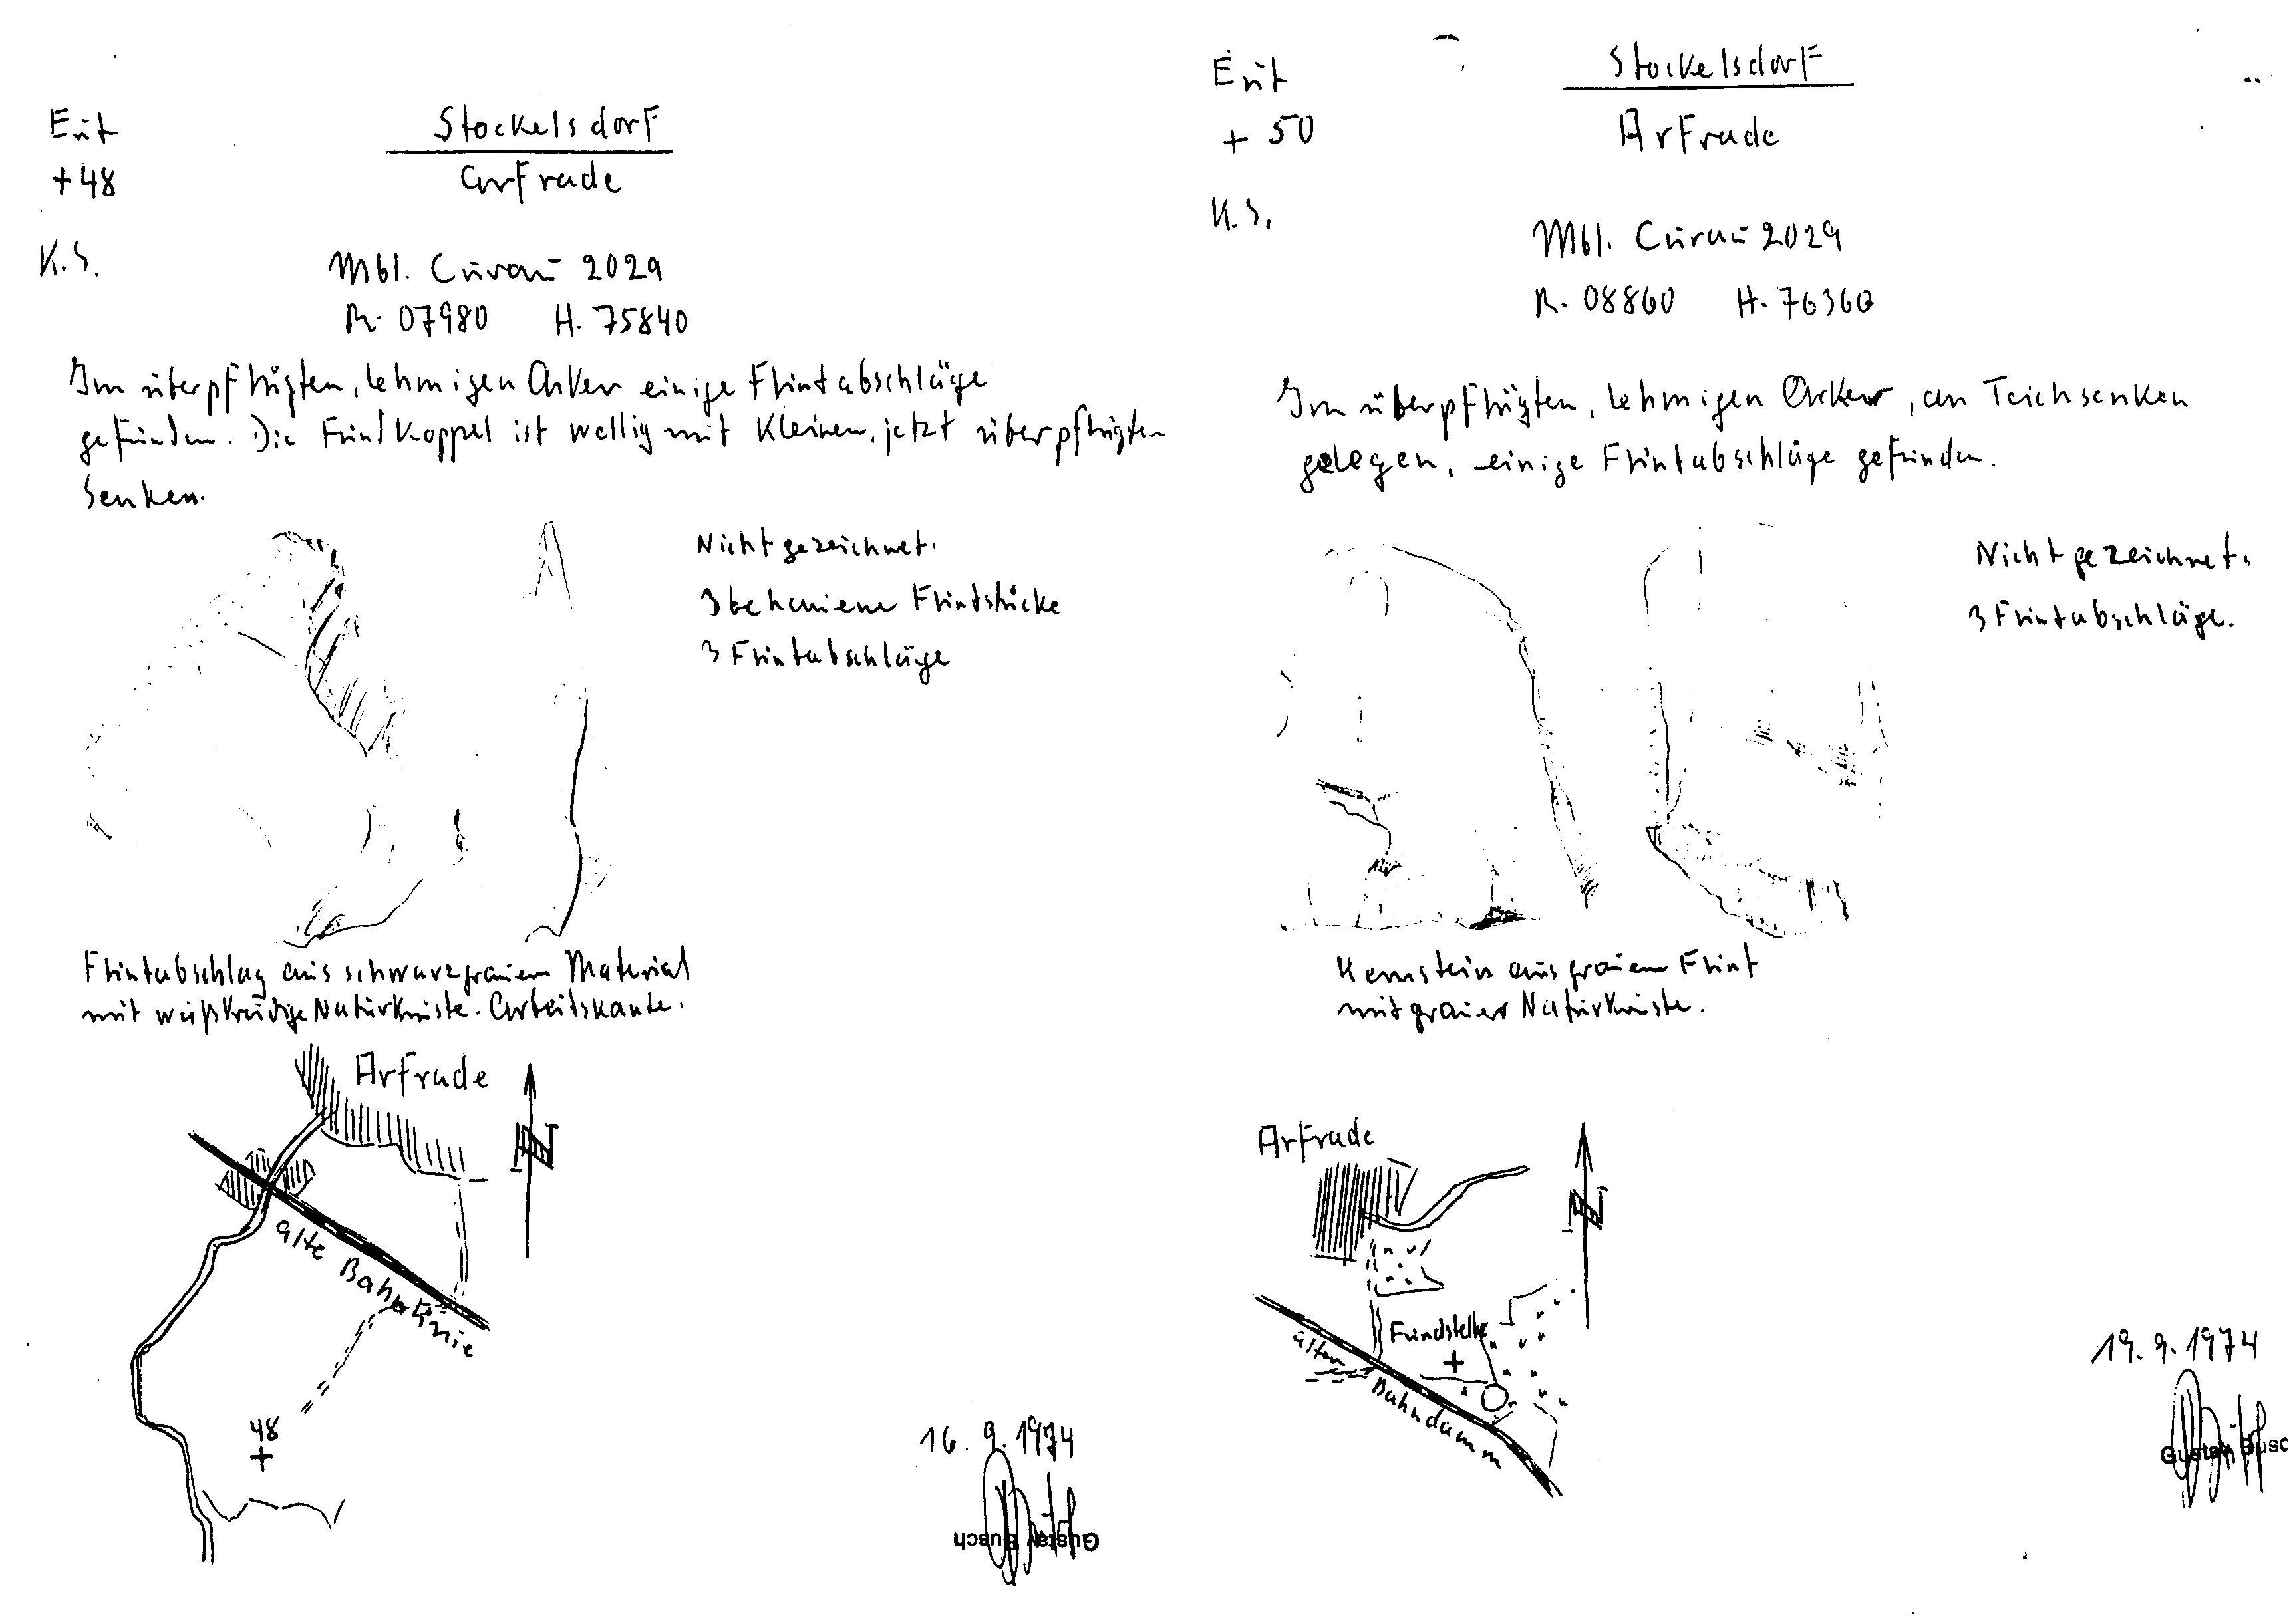 Eut
+48
Stockelsdorf
Arfrade
K.S.
Mbl. Curau 2029
R. 07980 H. 75840
Im überpflügten, lehmigen Acker einige Flintabschläge
gefunden. Die Fundkoppel ist wellig mit kleinen, jetzt überpflügten
Senken.
Nicht gezeichnet.
3 behauene Flintstücke
3 Flintabschläge
Flintabschlag aus schwarzgrauem Material
mit weißkreidige Naturkruste. Arbeitskante.
Arfrade
N
alte Bahnlinie
48
+
16. 9. 1974
Gustav Busch
Eut
+ 50
Stockelsdorf
Arfrade
K.S.
Mbl. Curau 2029
R. 08860 H. 76360
Im überpflügten, lehmigen Acker, an Teichsenken
gelegen, einige Flintabschläge gefunden.
Nicht gezeichnet.
3 Flintabschläge.
Kernstein aus grauem Flint
mit grauer Naturkruste.
Arfrade
N
Fundstelle
+
alter Bahndamm
19. 9. 1974
Gustav Busc